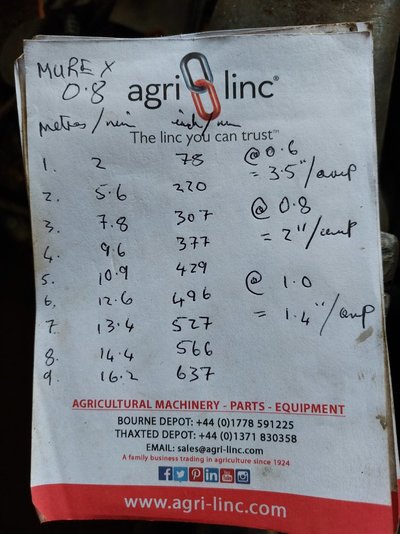 MUREX
0.8
agri linc®
The linc you can trust™
metres/min inch/min
1. 2 78
2. 5.6 220
3. 7.8 307
4. 9.6 377
5. 10.9 429
6. 12.6 496
7. 13.4 527
8. 14.4 566
9. 16.2 637
@ 0.6
= 3.5"/amp
@ 0.8
= 2"/amp
@ 1.0
= 1.4"/amp
AGRICULTURAL MACHINERY - PARTS - EQUIPMENT
BOURNE DEPOT: +44 (0)1778 591225
THAXTED DEPOT: +44 (0)1371 830358
EMAIL: sales@agri-linc.com
A family business trading in agriculture since 1924
www.agri-linc.com